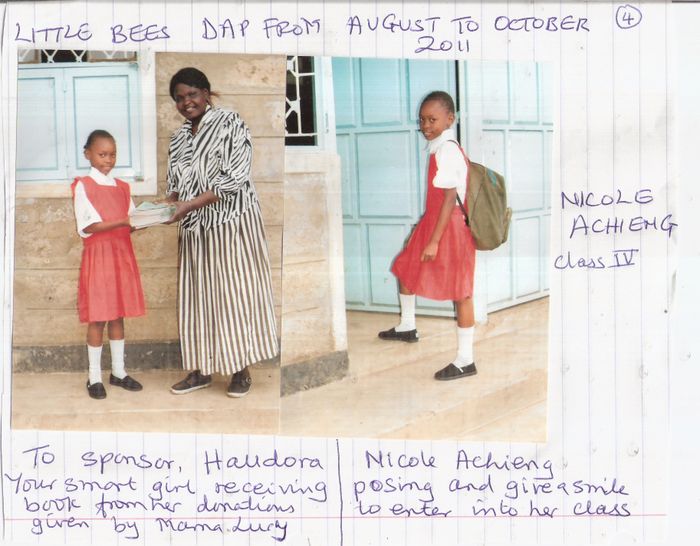 LITTLE BEES DAP FROM AUGUST TO OCTOBER
2011
4
NICOLE
ACHIENG
class IV
To sponsor, Halldora
Your smart girl receiving
book from her donations
given by Mama Lucy
Nicole Achieng
posing and give a smile
to enter into her class